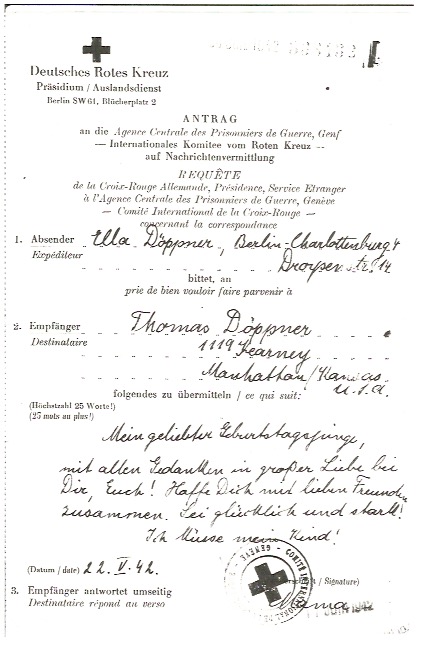 Deutsches Rotes Kreuz
Präsidium / Auslandsdienst
Berlin SW 61, Blücherplatz 2
ANTRAG
an die Agence Centrale des Prisonniers de Guerre, Genf
— Internationales Komitee vom Roten Kreuz —
auf Nachrichtenvermittlung
REQUÊTE
de la Croix-Rouge Allemande, Présidence, Service Etranger
à l'Agence Centrale des Prisonniers de Guerre, Genève
— Comité International de la Croix-Rouge —
concernant la correspondance
1. Absender Ella Döppner, Berlin-Charlottenburg 4
Expéditeur Droysenstr. 14
bittet, an
prie de bien vouloir faire parvenir à
2. Empfänger Thomas Döppner
Destinataire 1119 Kearney
Manhattan/Kansas
U.S.A.
folgendes zu übermitteln / ce qui suit:
(Höchstzahl 25 Worte!)
(25 mots au plus!)
Mein geliebter Geburtstagsjunge,
mit allen Gedanken in großer Liebe bei
Dir, Euch! Hoffe Dich mit lieben Freunden
zusammen. Sei glücklich und stark!
Ich küsse mein Kind!
(Datum / date) 22. V. 42.
/ Signature)
Mama
3. Empfänger antwortet umseitig
Destinataire répond au verso
GENÈVE COMITÉ